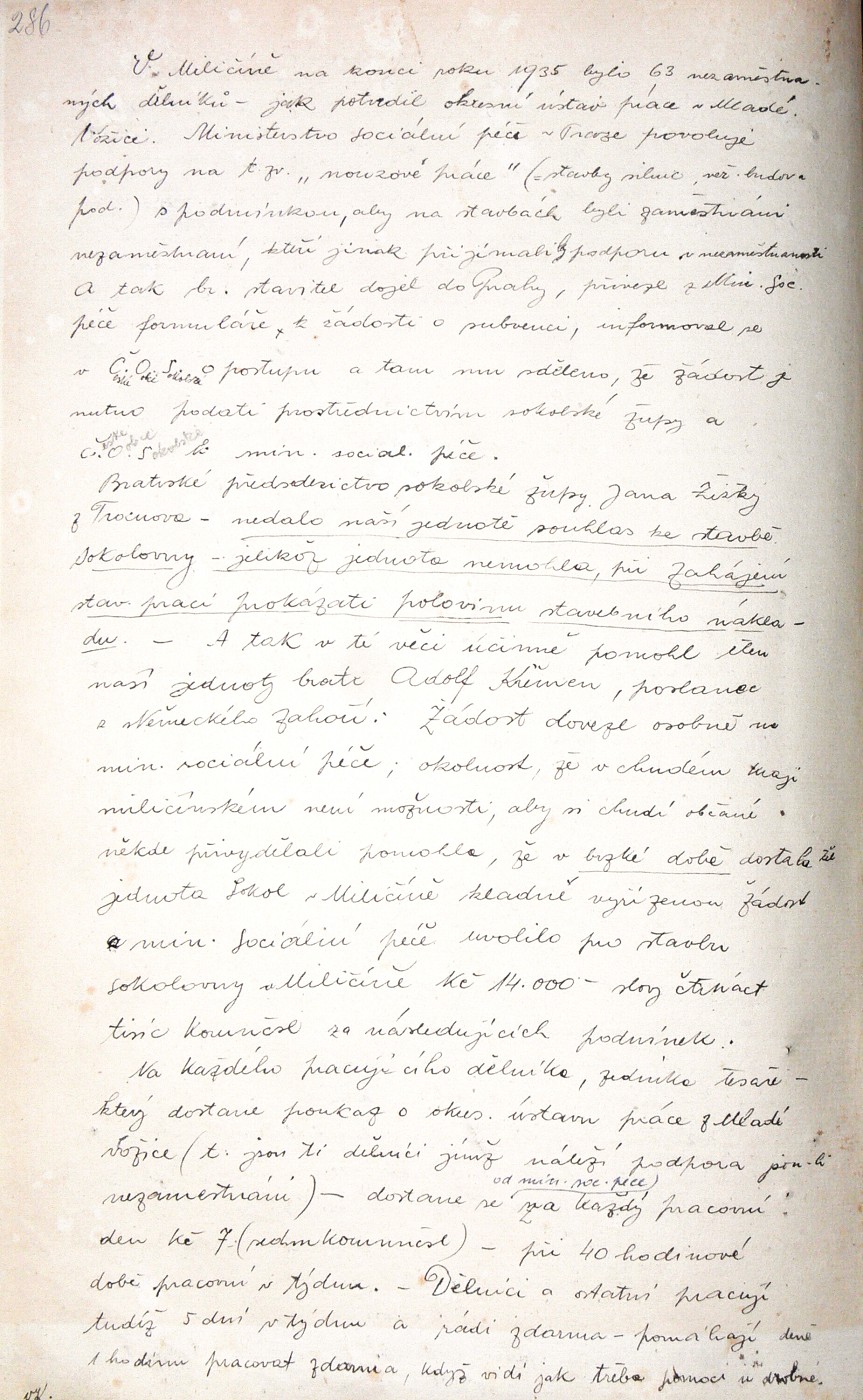 286
V Miličíně na konci roku 1935 bylo 63 nezaměstna-
ných dělníků – jak potvrdil okresní ústav práce v Mladé
Vožici. Ministerstvo sociální péče v Praze povoluje
podpory na t. zv. „nouzové práce" (= stavby silnic, veř. budov a
pod.) s podmínkou, aby na stavbách byli zaměstnáni
nezaměstnaní, kteří jinak přijímali by podporu v nezaměstnanosti
A tak br. stavitel dojel do Prahy, přivezl z Min. Soc.
péče formuláře k žádosti o subvenci, informoval se
v Č.O.S. o postupu a tam mu sděleno, že žádost je
nutno podati prostřednictvím sokolské župy a
Č.O.S. k min. social. péče.
Bratrské předsednictvo sokolské župy Jana Žižky
z Trocnova – nedalo naší jednotě souhlas ke stavbě
sokolovny – jelikož jednota nemohla, při zahájení
stav. prací prokázati polovinu stavebního nákla-
du. – A tak v té věci účinně pomohl člen
naší jednoty bratr Adolf Křemen, poslanec
z Německého Zahoří. Žádost dovezl osobně na
min. sociální péče; okolnost, že v chudém kraji
miličínském není možnosti, aby si chudí občané
někde přivydělali pomohla, že v brzké době dostala
jednota Sokol v Miličíně kladně vyřízenou žádost
a min. Sociální péče uvolilo pro stavbu
sokolovny v Miličíně Kč 14.000 – slovy čtrnáct
tisíc korunčsl za následujících podmínek.
Na každého pracujícího dělníka, zedníka tesaře –
který dostane poukaz o okres. ústavu práce z Mladé
Vožice (t. jsou ti dělníci jimž náleží podpora jsou-li
nezaměstnáni) – dostane se za každý pracovní
od min. soc. péče)
den Kč 7.- (sedm korunčsl) – při 40 hodinové
době pracovní v týdnu. – Dělníci a ostatní pracují
tudíž 5 dní v týdnu a rádi zdarma – pomáhají denně
1 hodinu pracovat zdarma, když vidí jak třeba pomoci i drobné.